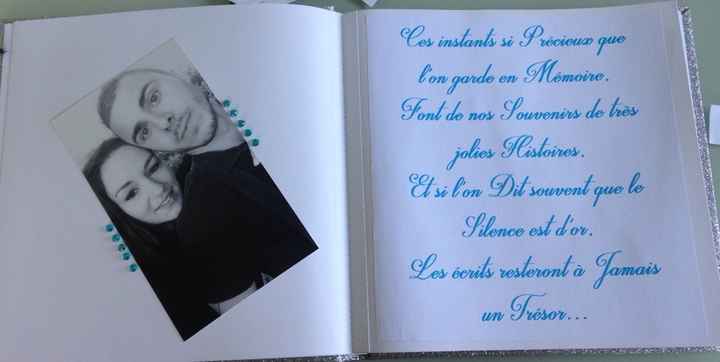 Ces instants si Précieux que
l'on garde en Mémoire.
Font de nos Souvenirs de très
jolies Histoires.
Et si l'on Dit souvent que le
Silence est d'or.
Les écrits resteront à Jamais
un Trésor...